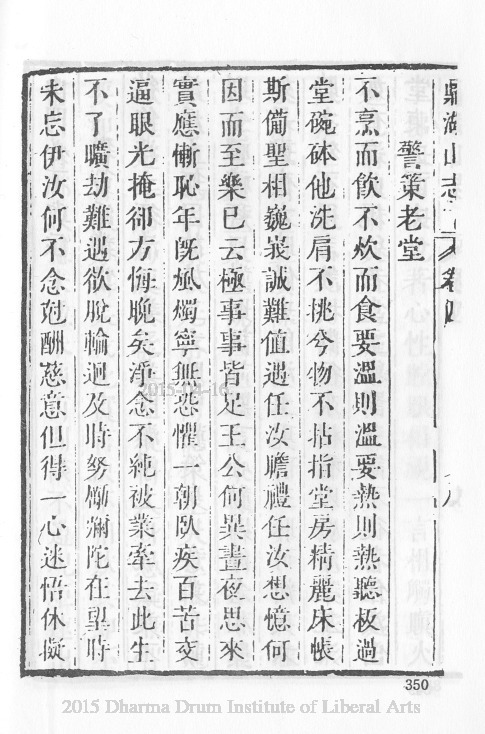 鼎湖山志 卷四
警策老堂
不烹而飲不炊而食要溫則溫要熱則熱聽板過
堂碗砵他洗肩不挑兮物不拈指堂房精麗床帳
斯備聖相巍峩誠難值遇任汝瞻禮任汝想憶何
因而至樂已云極事事皆足王公何異晝夜思來
實應慚恥年旣風燭寧無恐懼一朝臥疾百苦交
逼眼光掩卻方悔晚矣淨念不純被業牽去此生
不了曠劫難遇欲脫輪迴及時努勵彌陀在望時
未忘伊汝何不念尅酬慈意但得一心迷悟休擬
350
2015-04-16
2015 Dharma Drum Institute of Liberal Arts